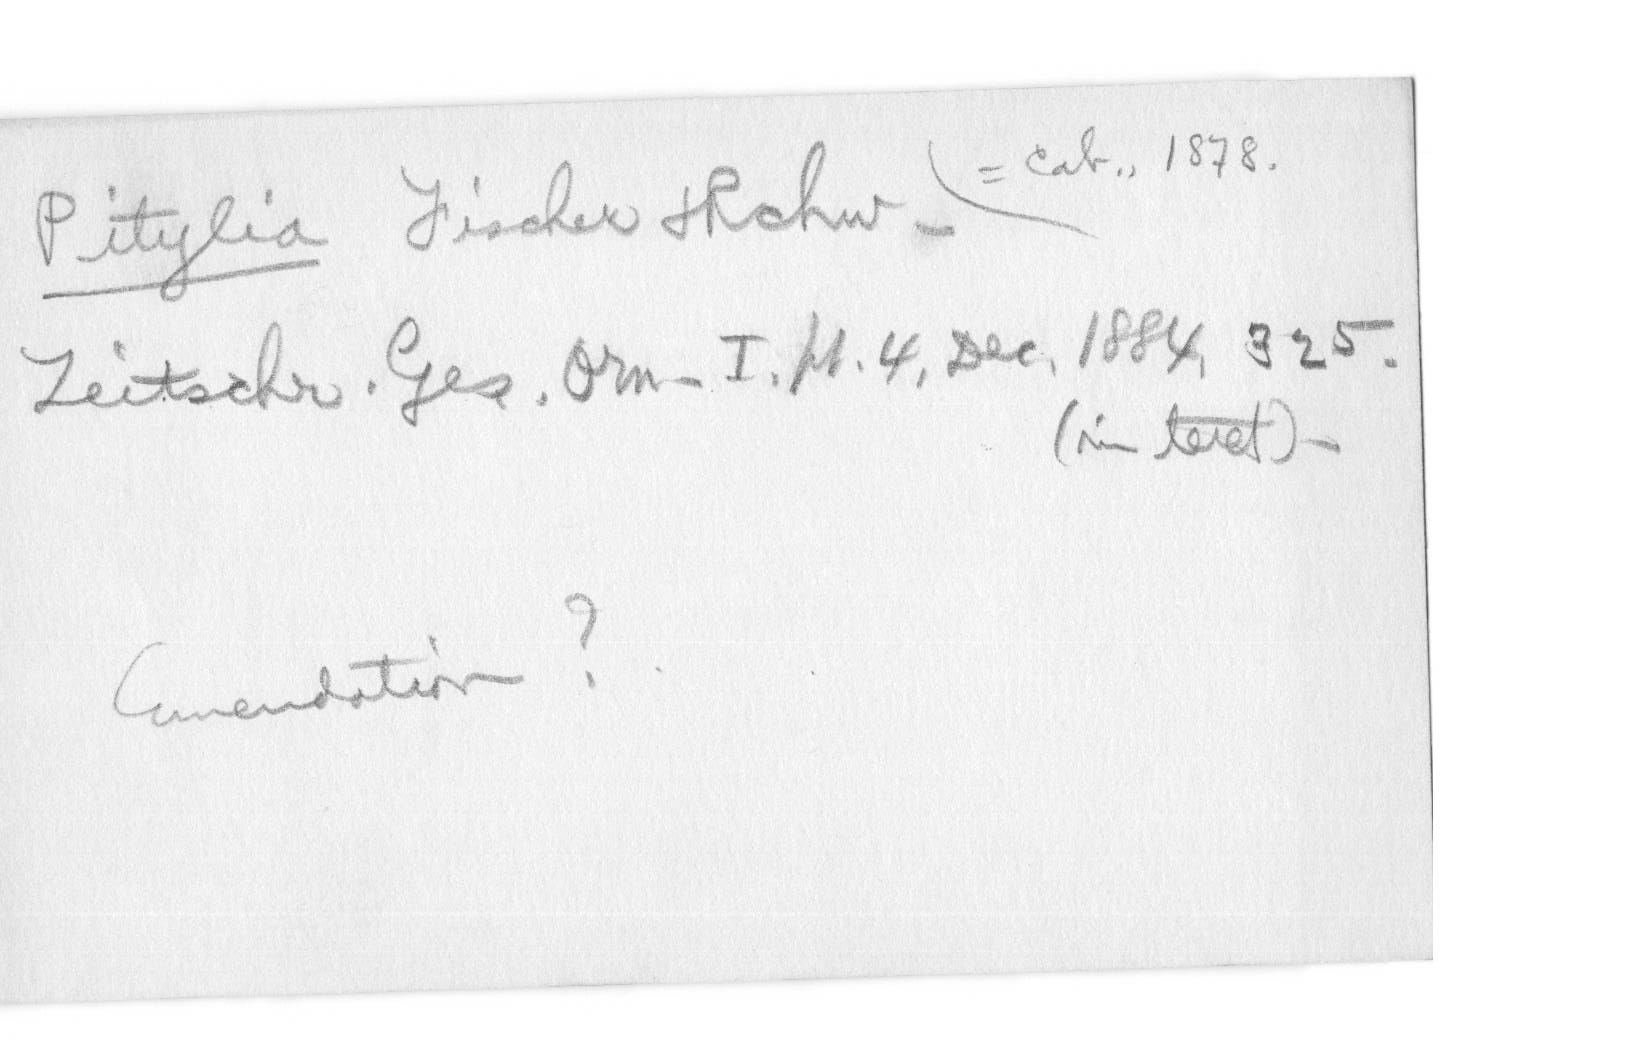 Pitylia Fischer + Rchw - = Cab., 1878.
Zeitschr. Ges. Orn. I. pt. 4, Dec, 1884, 325.
(in text)-
Emendation ?